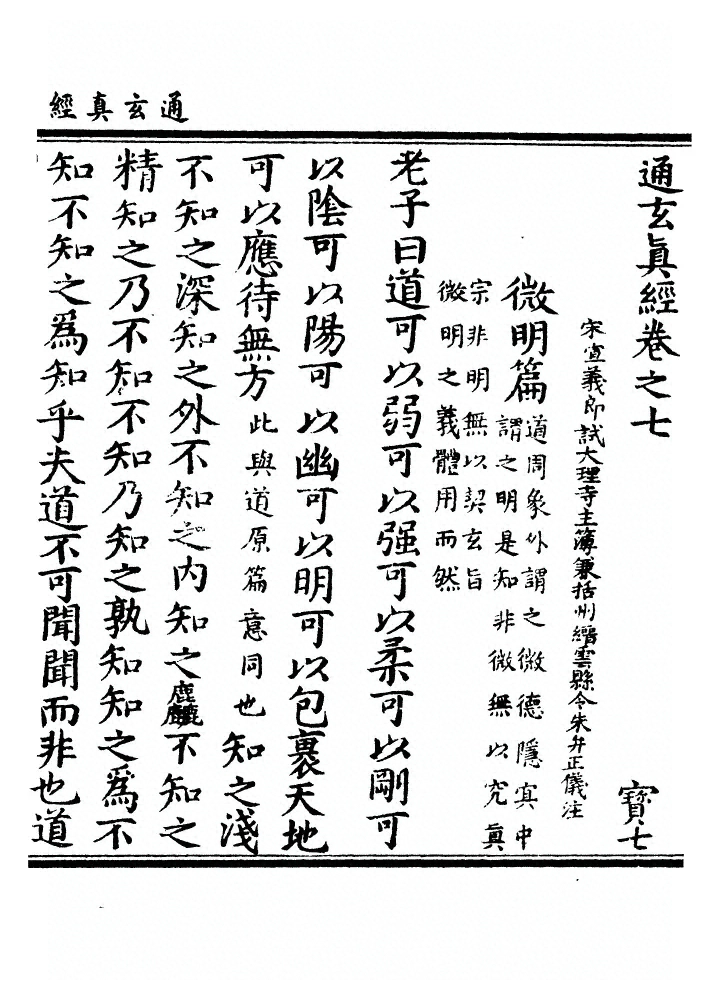 通玄真經
通玄眞經卷之七 寶七
宋宣義郎試大理寺主簿兼括州縉雲縣令朱弁正儀注
微明篇
道周象外謂之微德隱㝠中
謂之明是知非微無以究眞
宗非明無以契玄旨
微明之義體用而然
老子曰道可以弱可以强可以柔可以剛可
以陰可以陽可以幽可以明可以包裹天地
可以應待無方此與道原篇意同也知之淺
不知之深知之外不知之内知之麤不知之
精知之乃不知不知乃知之孰知知之爲不
知不知之爲知乎夫道不可聞聞而非也道